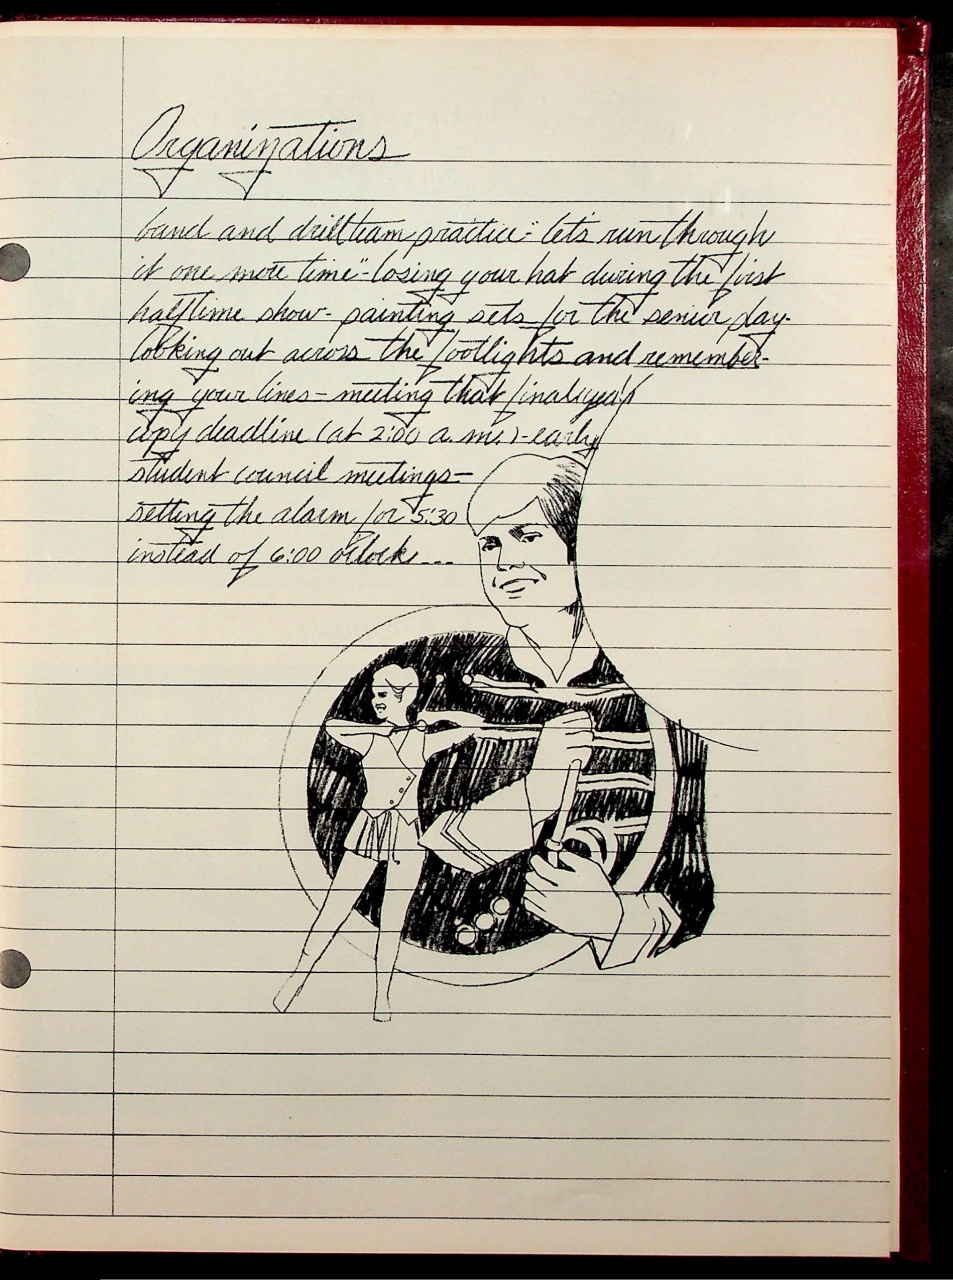 Organizations
band and drill team practice-"let's run through
it one more time"-losing your hat during the first
halftime show- painting sets for the senior play-
looking out across the footlights and remember-
ing your lines- meeting that final year
copy deadline (at 2:00 a.m.)-early
student council meetings-
setting the alarm for 5:30
instead of 6:00 o'clock...